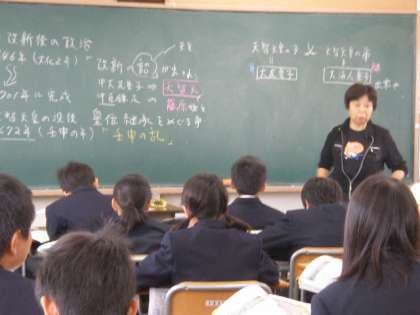 改新後の政治
646年(大化2年)
701年に完成
天智天皇の没後
672年(壬申の年)
改新の詔が出され
中大兄皇子⇒天智天
中臣鎌足⇒
藤原
皇位継承をめぐる争
"壬申の乱"
天智天皇の子 × 天智天皇の弟
大友皇子
大海人皇子